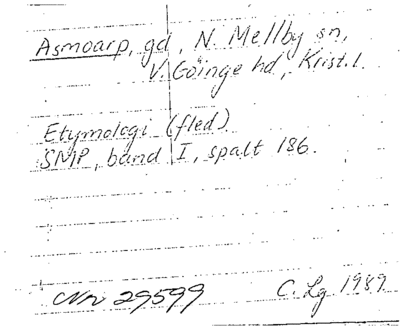 Asmoarp, gd, N. Mellby sn,
V. Göinge hd, Krist.l.
Etymologi (fled)
SMP, band I, spalt 186.
Nr 29599 C. Lg 1989